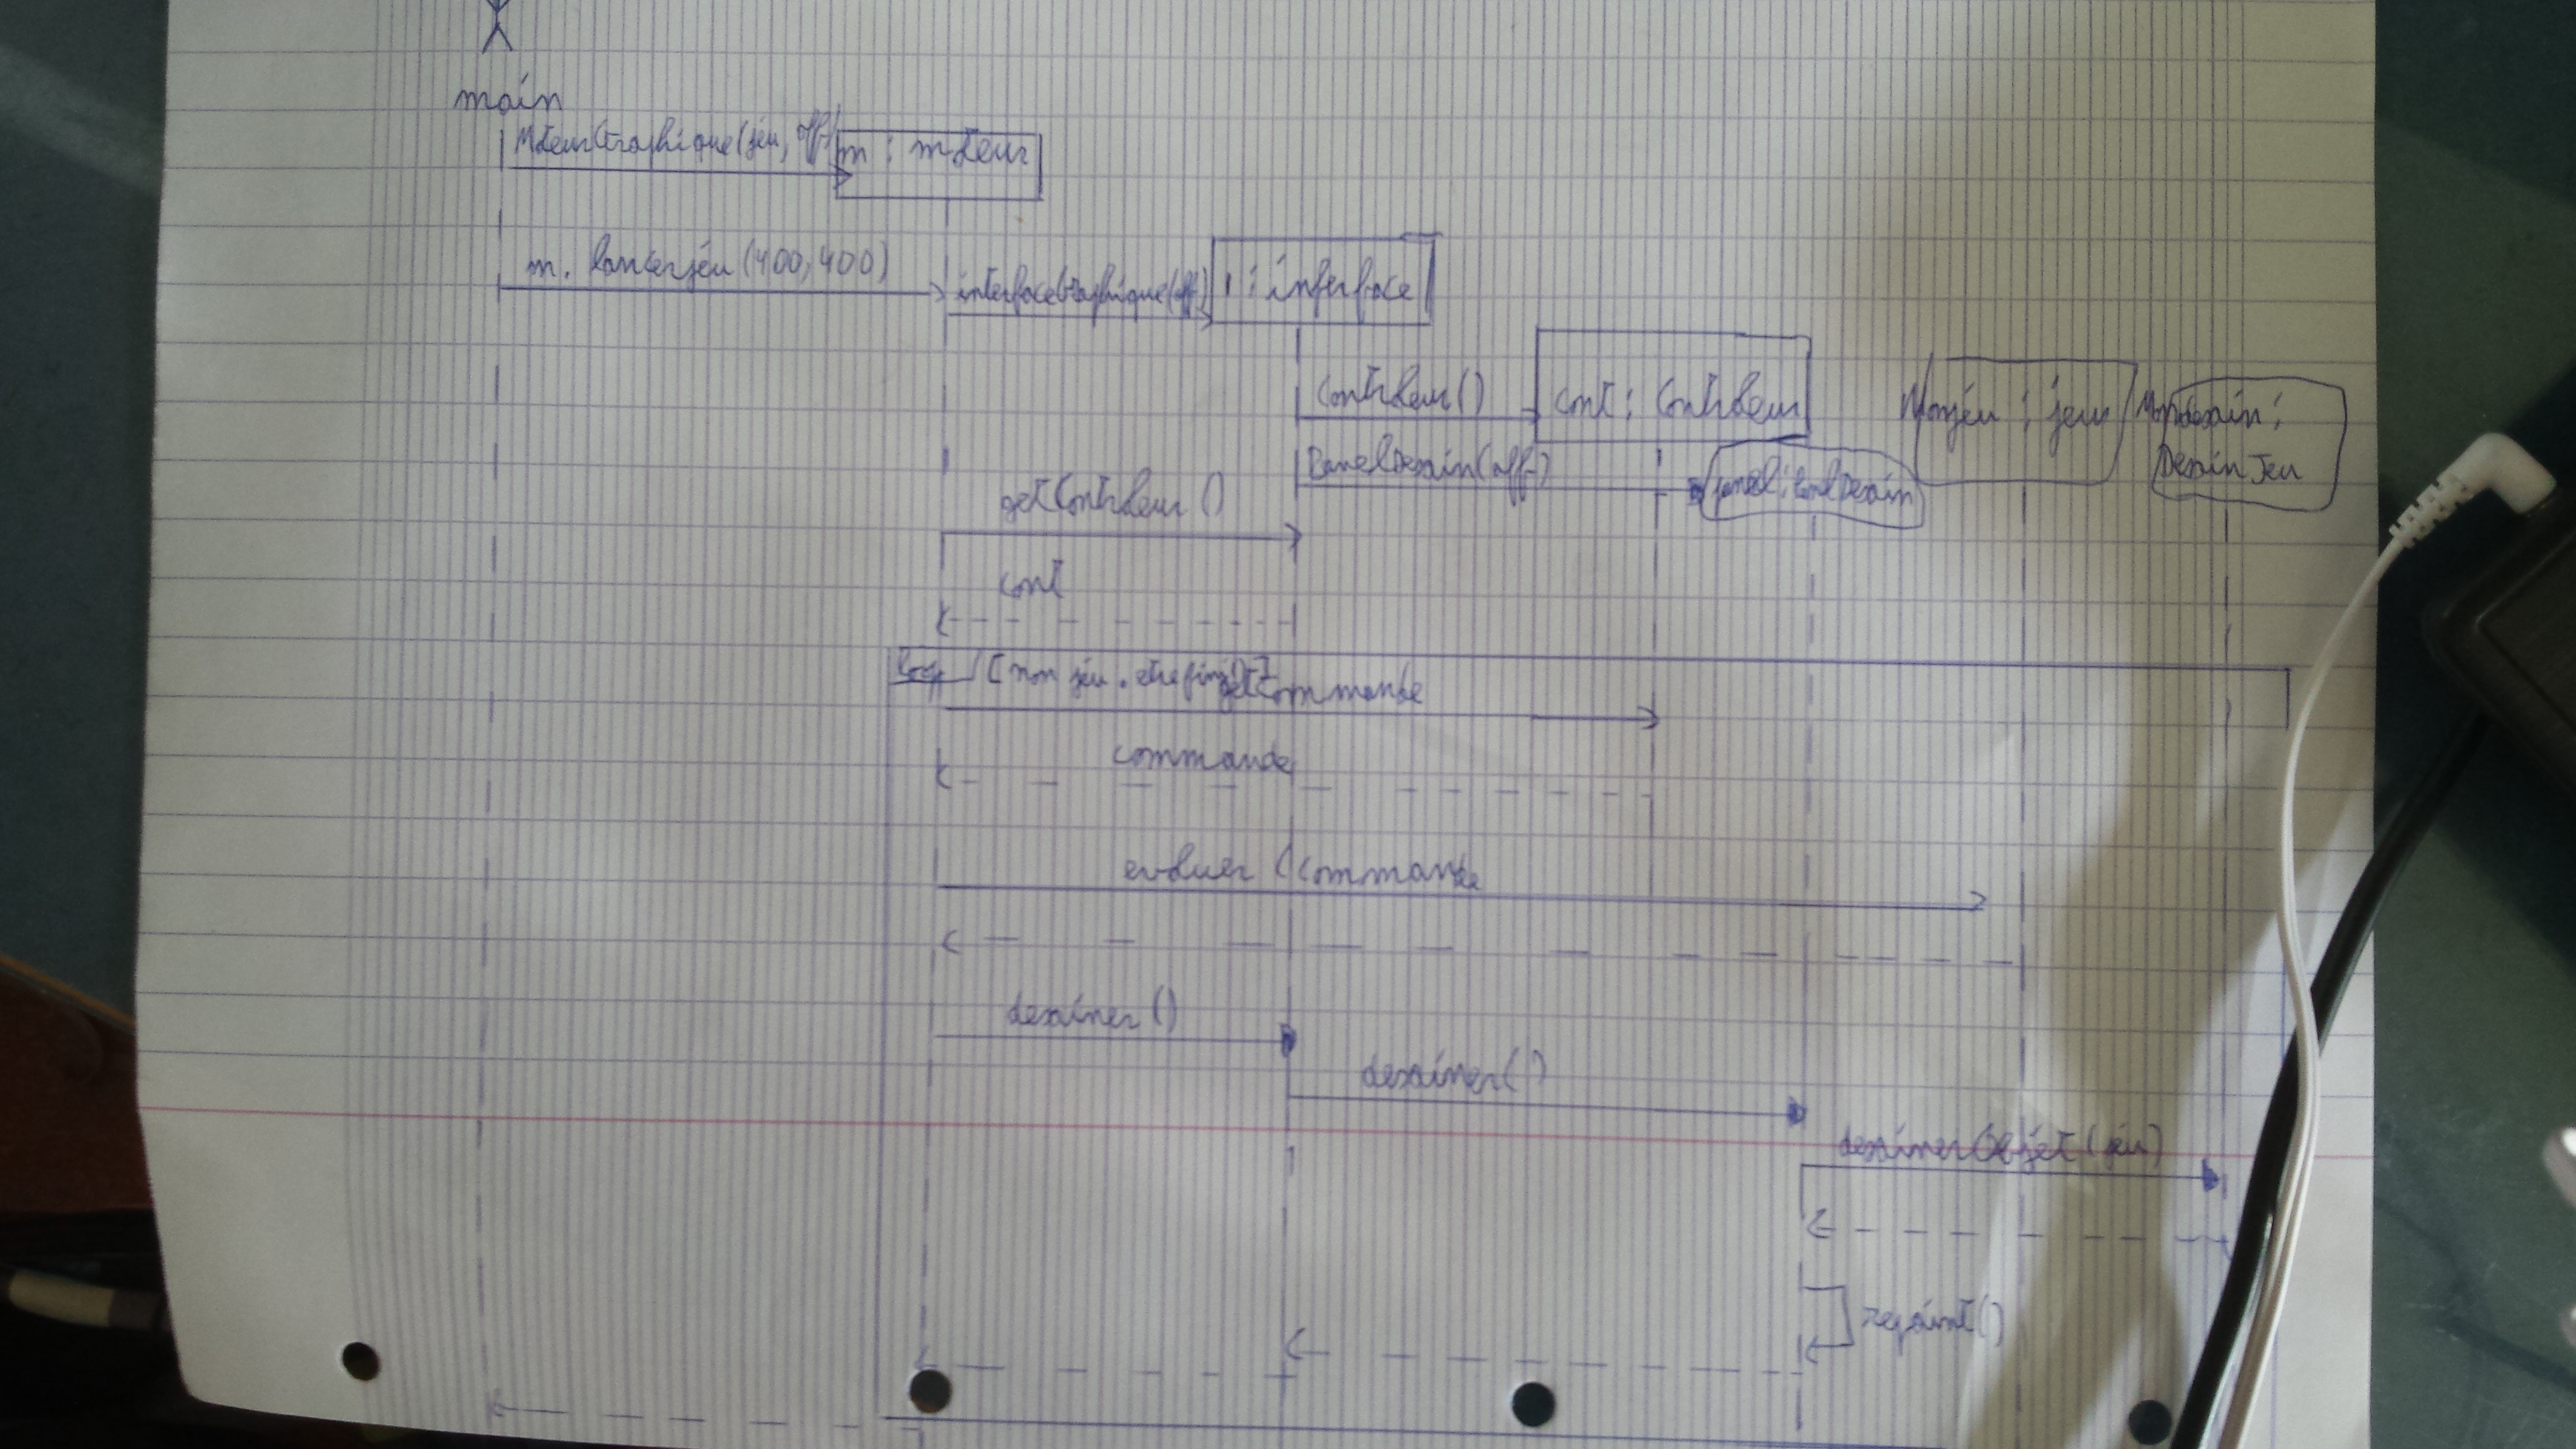 main
MoteurGraphique(jeu, aff)
m : moteur
m. lancerjeu (400, 400)
interfaceGraphique(aff)
i : interface
Controleur()
cont : Controleur
Monjeu : jeu
Mondessin :
DessinJeu
PanelDessin(aff)
panel : PanelDessin
getControleur ()
cont
loop [non jeu.etrefini]
getCommande
commande
evoluer (commande
dessiner ()
dessiner()
dessinerObjet (jeu)
repaint()